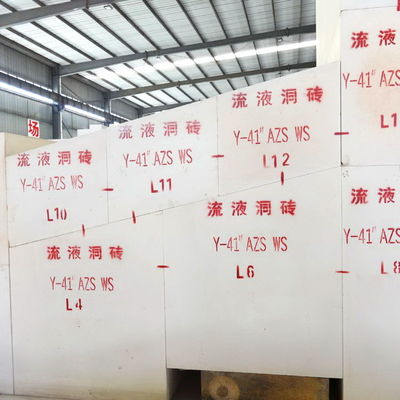 场
流液洞砖
Y-41" AZS WS
L10
流液洞砖
Y-41" AZS WS
L11
流液洞砖
Y-41" AZS WS
L12
流液洞砖
Y-41" AZS
流液洞砖
Y-41" AZS WS
L4
流液洞砖
Y-41" AZS WS
L6
流液洞砖
Y-41" AZS
L8